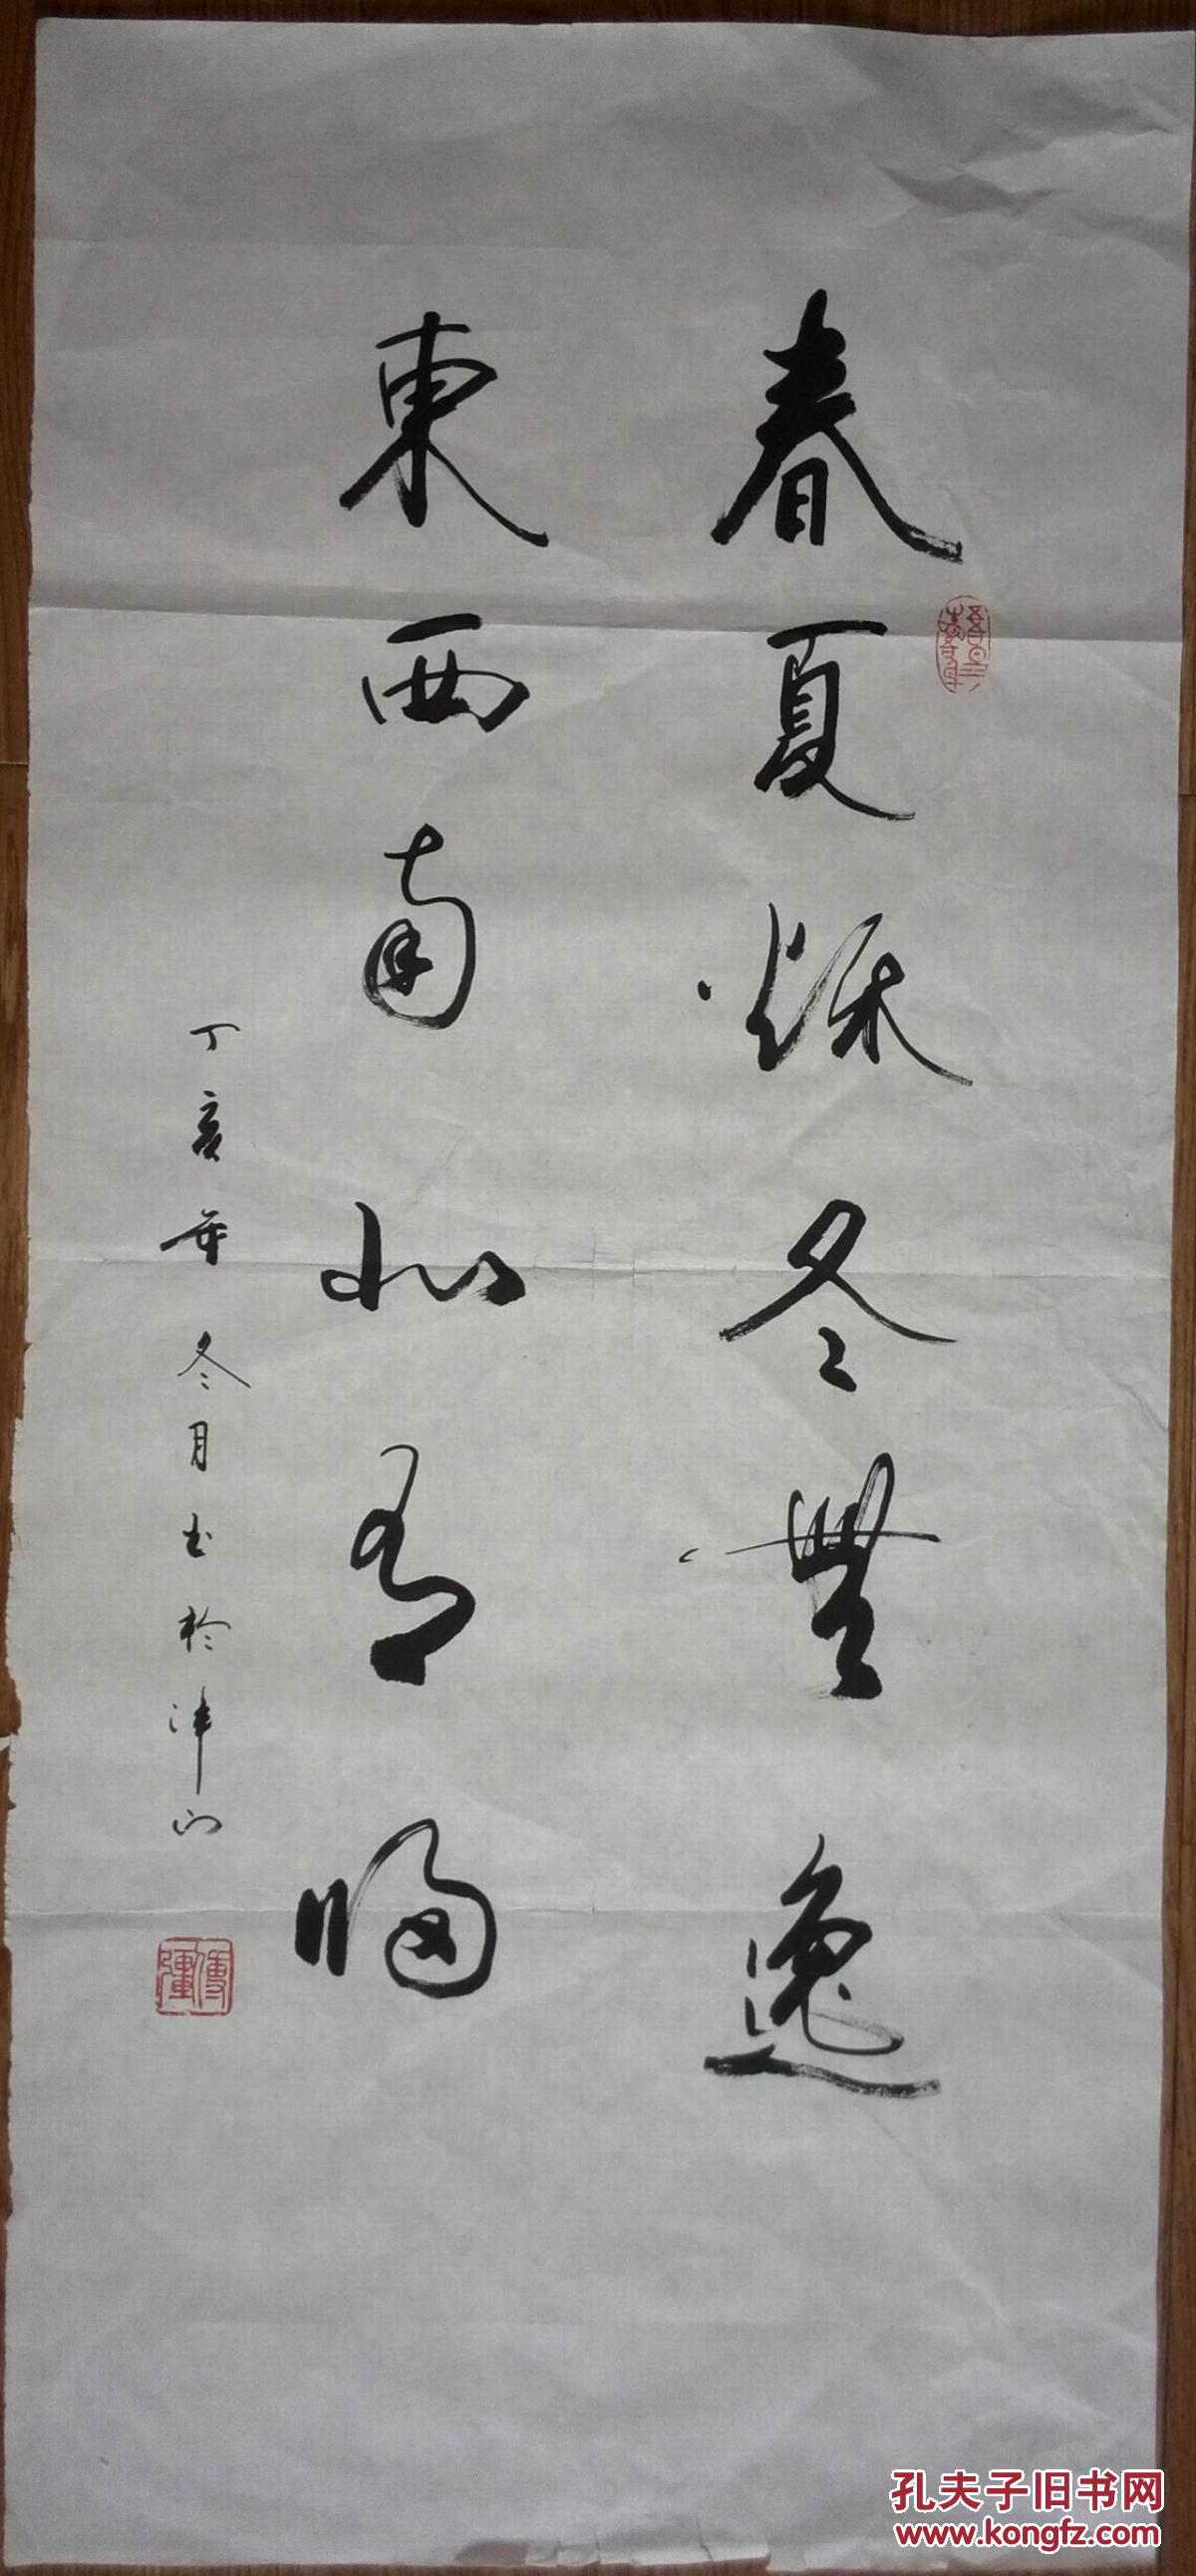 春夏秌冬豊逸
東西南北有歸
丁亥年冬月书於津门
傅運
孔夫子旧书网
www.kongfz.com